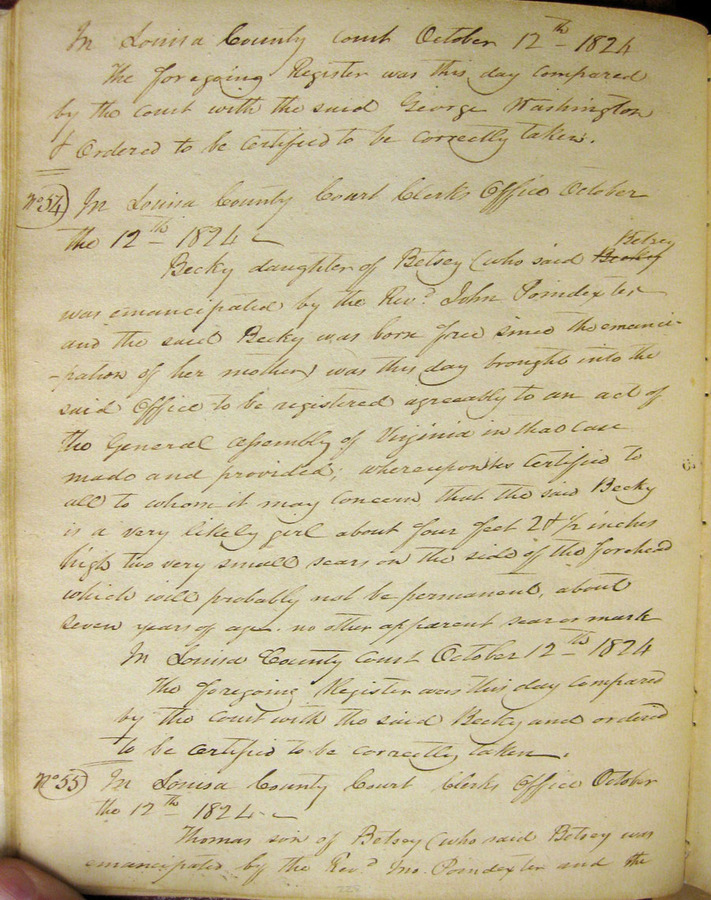 In Louisa County court October 12th 1824
The foregoing Register was this day compared
by the court with the said George Washington
& Ordered to be Certified to be correctly taken.
No 54) In Louisa County Court Clerks Office October
the 12th 1824
Betsey
Becky daughter of Betsey (who said Becky
was emancipated by the Revd. John Poindexter
and the said Becky was born free since the emanci-
-pation of her mother) was this day brought into the
said Office to be registered agreeably to an act of
the General Assembly of Virginia in that Case
made and provided; whereupon its Certified to
all to whom it may Concern that the said Becky
is a very likely girl about four feet 2 & 1/2 inches
high two very small scars on the side of the forehead
which will probably not be permanent, about
seven years of age. no other apparent scar or mark
In Louisa County Court October 12th 1824
The foregoing Register was this day Compared
by the Court with the said Becky and ordered
to be Certified to be correctly taken.
No 55) In Louisa County Court Clerks Office October
the 12th 1824
Thomas son of Betsey (who said Betsey was
emancipated by the Revd. Jno. Poindexter and the